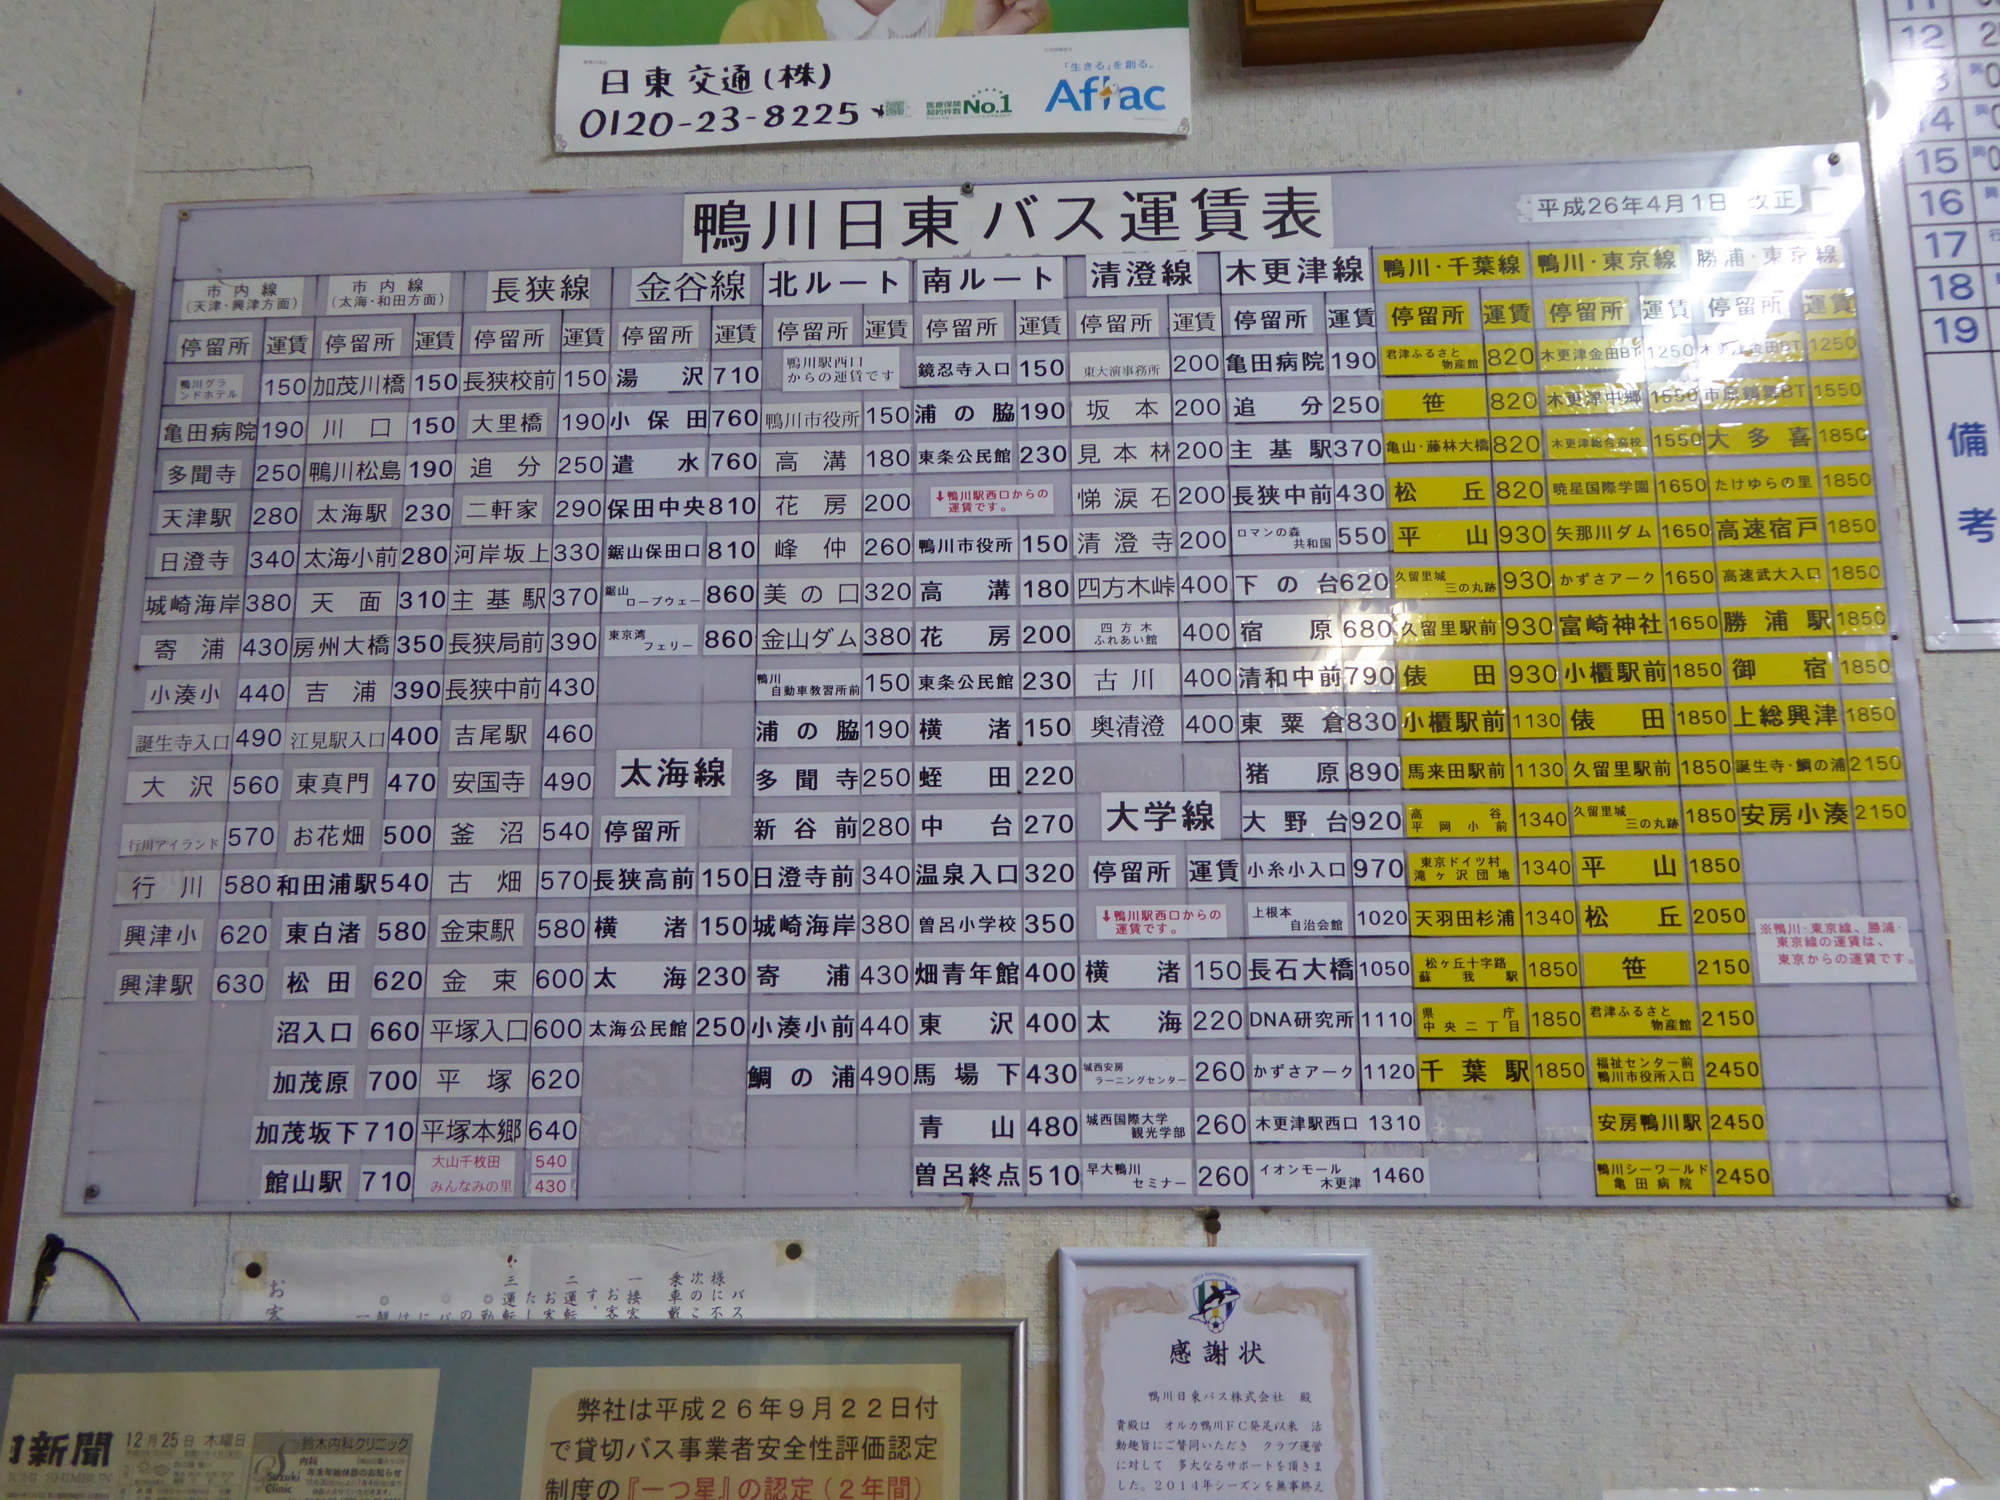 日東交通(株)
0120-23-8225
医療保険
契約件数 No.1
「生きる」を創る。
Aflac
鴨川日東バス運賃表
平成26年4月1日 改正
市内線
(天津・興津方面)
停留所 運賃
鴨川グランドホテル 150
亀田病院 190
多聞寺 250
天津駅 280
日澄寺 340
城崎海岸 380
寄浦 430
小湊小 440
誕生寺入口 490
大沢 560
行川アイランド 570
行川 580
興津小 620
興津駅 630
市内線
(太海・和田方面)
停留所 運賃
加茂川橋 150
川口 150
鴨川松島 190
太海駅 230
太海小前 280
天面 310
房州大橋 350
吉浦 390
江見駅入口 400
東真門 470
お花畑 500
和田浦駅 540
東白渚 580
松田 620
沼入口 660
加茂原 700
加茂坂下 710
館山駅 710
長狭線
停留所 運賃
長狭校前 150
大里橋 190
追分 250
二軒家 290
河岸坂上 330
主基駅 370
長狭局前 390
長狭中前 430
吉尾駅 460
安国寺 490
釜沼 540
古畑 570
金束駅 580
金束 600
平塚入口 600
平塚 620
平塚本郷 640
大山千枚田 540
みんなみの里 430
金谷線
停留所 運賃
湯沢 710
小保田 760
遣水 760
保田中央 810
鋸山保田口 810
鋸山ロープウェー 860
東京湾フェリー 860
太海線
停留所
長狭高前 150
横渚 150
太海 230
太海公民館 250
北ルート
停留所 運賃
鴨川駅西口
からの運賃です
鴨川市役所 150
高溝 180
花房 200
峰仲 260
美の口 320
金山ダム 380
鴨川自動車教習所前 150
浦の脇 190
多聞寺 250
新谷前 280
日澄寺前 340
城崎海岸 380
寄浦 430
小湊小前 440
鯛の浦 490
南ルート
停留所 運賃
鏡忍寺入口 150
浦の脇 190
東条公民館 230
↓鴨川駅西口からの
運賃です。
鴨川市役所 150
高溝 180
花房 200
東条公民館 230
横渚 150
蛭田 220
中台 270
温泉入口 320
曽呂小学校 350
畑青年館 400
東沢 400
馬場下 430
青山 480
曽呂終点 510
清澄線
停留所 運賃
東大演事務所 200
坂本 200
見本林 200
悌涙石 200
清澄寺 200
四方木峠 400
四方木ふれあい館 400
古川 400
奥清澄 400
大学線
停留所 運賃
↓鴨川駅西口からの
運賃です。
横渚 150
太海 220
城西安房ラーニングセンター 260
城西国際大学観光学部 260
早大鴨川セミナー 260
木更津線
停留所 運賃
亀田病院 190
追分 250
主基駅 370
長狭中前 430
ロマンの森共和国 550
下の台 620
宿原 680
清和中前 790
東粟倉 830
猪原 890
大野台 920
小糸小入口 970
上根本自治会館 1020
長石大橋 1050
DNA研究所 1110
かずさアーク 1120
木更津駅西口 1310
イオンモール木更津 1460
鴨川・千葉線
停留所 運賃
君津ふるさと物産館 820
笹 820
亀山・藤林大橋 820
松丘 820
平山 930
久留里城三の丸跡 930
久留里駅前 930
俵田 930
小櫃駅前 1130
馬来田駅前 1130
高谷
平岡小前 1340
東京ドイツ村
滝ヶ沢団地 1340
天羽田杉浦 1340
松ヶ丘十字路
蘇我駅 1850
県庁
中央二丁目 1850
千葉駅 1850
鴨川・東京線
停留所 運賃
木更津金田BT 1250
木更津中郷 1550
木更津総合高校 1550
暁星国際学園 1650
矢那川ダム 1650
かずさアーク 1650
富崎神社 1650
小櫃駅前 1850
俵田 1850
久留里駅前 1850
久留里城三の丸跡 1850
平山 1850
松丘 2050
笹 2150
君津ふるさと物産館 2150
福祉センター前
鴨川市役所入口 2450
安房鴨川駅 2450
鴨川シーワールド
亀田病院 2450
勝浦・東京線
停留所 運賃
木更津金田BT 1250
市原鶴舞BT 1550
大多喜 1850
たけゆらの里 1850
高速宿戸 1850
高速武大入口 1850
勝浦駅 1850
御宿 1850
上総興津 1850
誕生寺・鯛の浦 2150
安房小湊 2150
※鴨川・東京線、勝浦・
東京線の運賃は、
東京からの運賃です。
12
14
15
16
17
18
19
備考
新聞
12月25日 木曜日
鈴木内科クリニック
内科
Suzuki
Clinic
年末年始休診のお知らせ
弊社は平成26年9月22日付
で貸切バス事業者安全性評価認定
制度の『一つ星』の認定(2年間)
感謝状
鴨川日東バス株式会社 殿
貴殿は オルカ鴨川FC発足以来 活
動趣旨にご賛同いただき クラブ運営
に対して 多大なるサポートを頂きま
した。2014年シーズンを無事終え